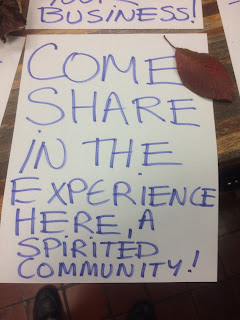 BUSINESS!
COME
SHARE
IN THE
EXPERIENCE
HERE, A
SPIRITED
COMMUNITY!